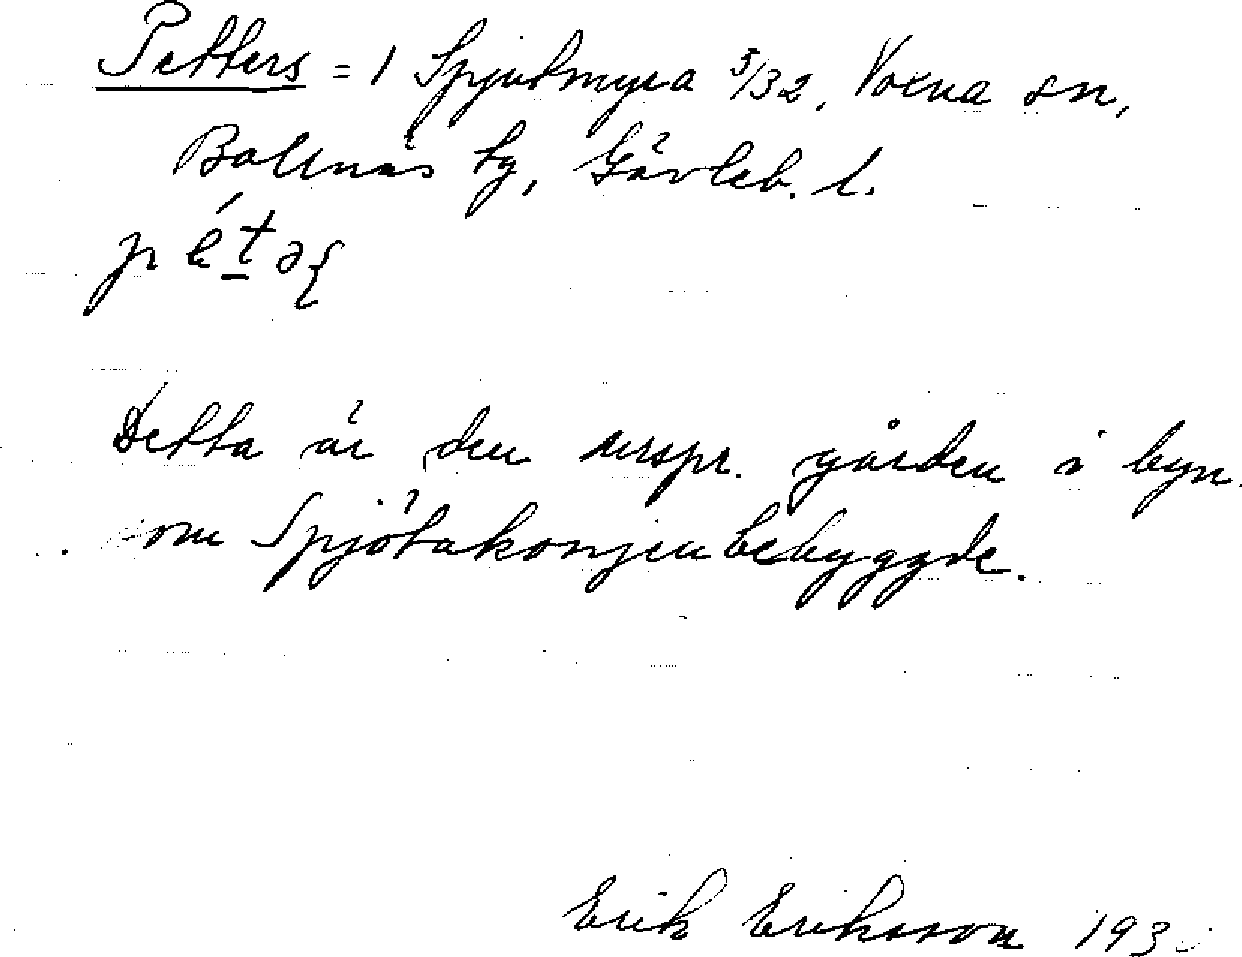 Petters = 1 Spjutmyra 5/32, Voxna sn,
Bollnäs tg, Gävleb. l.
pét̲əʃ
Detta är den urspr. gården i byn
som Spjótakonjen bebyggde.
Erik Eriksson 193